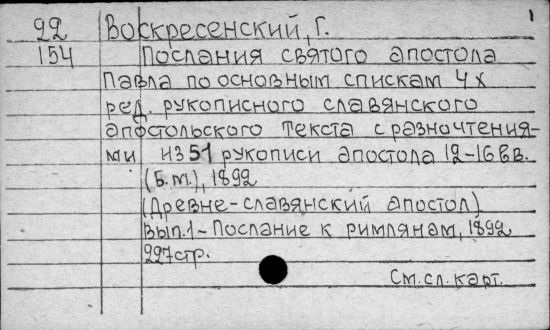 1
92 Воскресенский, Г.
154 Послания святого апостола
Павла по основным спискам 4х
ред. рукописного славянского
апостольского текста с разночтения-
ми из 51 рукописи апостола 12-16 вв.
(Б.м.), 1892
(Древне-славянский апостол)
Вып.1- Послание к римлянам, 1892
227стр.
См.сл.карт.